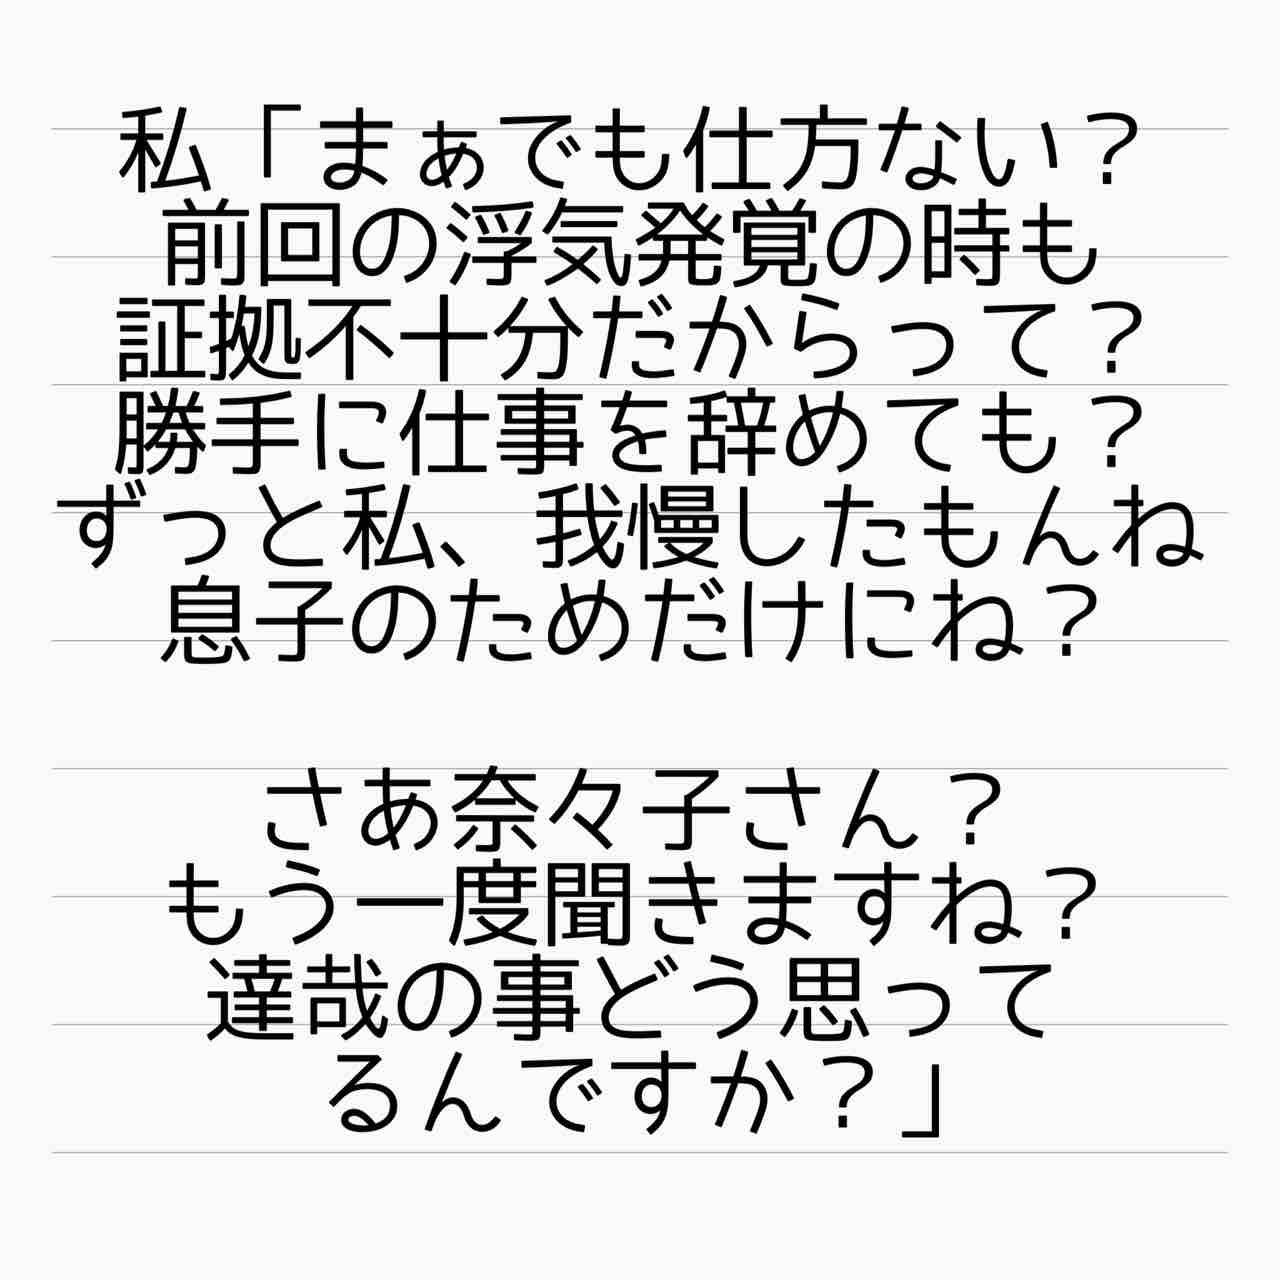 私「まぁでも仕方ない？
前回の浮気発覚の時も
証拠不十分だからって？
勝手に仕事を辞めても？
ずっと私、我慢したもんね
息子のためだけにね？
さあ奈々子さん？
もう一度聞きますね？
達哉の事どう思って
るんですか？」